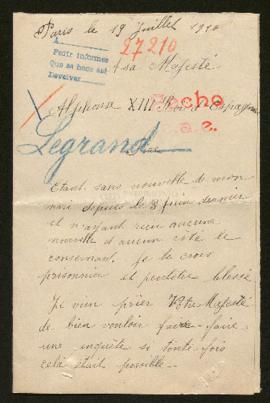 Paris le 19 Juillet 1916
27210
A
Pedir informes
Que se haga así
Devolver
A sa Majesté
Alphonse XIII Roi d'Espagne
Fecho
Legrand
Etant sans nouvelle de mon
mari depuis le 8 juin dernier
et n'ayant reçu aucune
nouvelle d'aucun côté le
concernant. je le crois
prisonnier et peutêtre blessé
Je vien prier Votre Majesté
de bien vouloir faire faire
une enquête si toute fois
celà était possible